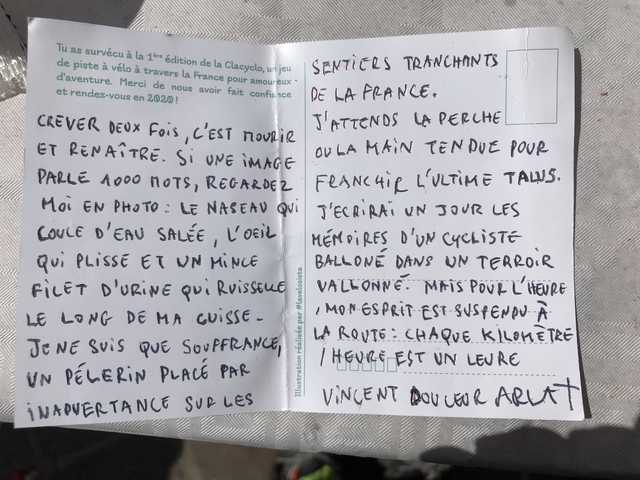 Tu as survécu à la 1ère édition de la Clacyclo, un jeu
de piste à vélo à travers la France pour amoureux
d'aventure. Merci de nous avoir fait confiance
et rendez-vous en 2020 !
CREVER DEUX FOIS, C'EST MOURIR
ET RENAÎTRE. SI UNE IMAGE
PARLE 1000 MOTS, REGARDEZ
MOI EN PHOTO : LE NASEAU QUI
COULE D'EAU SALÉE, L'OEIL
QUI PLISSE ET UN MINCE
FILET D'URINE QUI RUISSELLE
LE LONG DE MA CUISSE.
JE NE SUIS QUE SOUFFRANCE,
UN PÉLERIN PLACÉ PAR
INADVERTANCE SUR LES
Illustration réalisée par #lavelosista
SENTIERS TRANCHANTS
DE LA FRANCE.
J'ATTENDS LA PERCHE
OU LA MAIN TENDUE POUR
FRANCHIR L'ULTIME TALUS.
J'ECRIRAI UN JOUR LES
MÉMOIRES D'UN CYCLISTE
BALLONÉ DANS UN TERROIR
VALLONNÉ. MAIS POUR L'HEURE
, MON ESPRIT EST SUSPENDU À
LA ROUTE : CHAQUE KILOMÈTRE
/ HEURE EST UN LEURE
VINCENT DOULEUR ARLAT